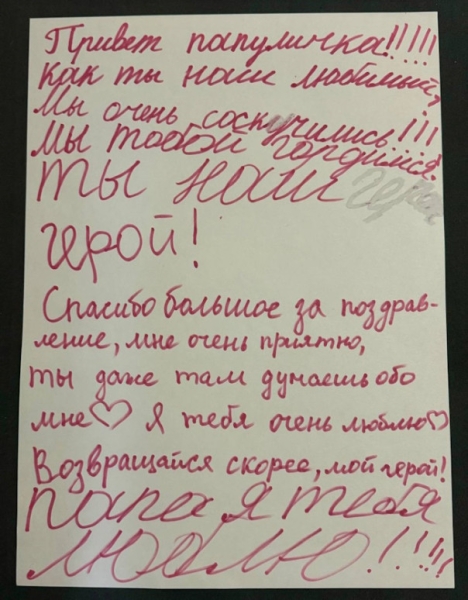 Привет папуличка!!!!!
Как ты наш любимый?
Мы очень соскучились!!!
Мы тобой гордимся!
ты наш герой
герой!
Спасибо большое за поздрав-
ление, мне очень приятно,
ты даже там думаешь обо
мне♡ Я тебя очень люблю♡
Возвращайся скорее, мой герой!
папа я тебя
люблю!!!!!